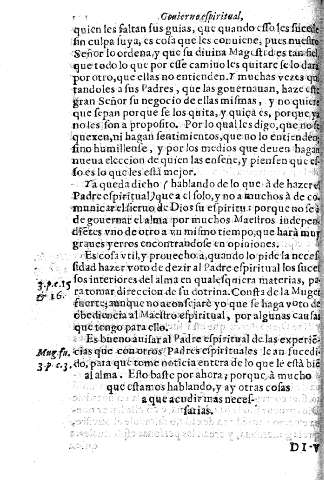 Gouierno espiritual,
quien les faltan sus guias, que quando esso les sucede
sin culpa suya, es cosa que les conuiene, pues nuestro
Señor lo ordena, y que su diuina Magestad es tan fiel,
que todo lo que por esse camino les quitare se lo dará
por otro, que ellas no entienden. Y muchas vezes qui
tandoles a sus Padres, que las gouernauan, haze este
gran Señor su negocio de ellas mismas, y no quiere
que sepan porque se los quita, y quiça es, porque ya
no les son a proposito. Por lo qual les digo, que no se
quexen, ni hagan sentimientos, que no lo entienden
sino humillense, y por los medios que deuen hagan
nueua eleccion de quien las enseñe, y piensen que es-
so es lo que les está mejor.
Ya queda dicho (hablando de lo que à de hazer el
Padre espiritual) que a el solo, y no a muchos à de co-
municar el sieruo de Dios su espiritu: porque no se à
de gouernar el alma por muchos Maestros indepen
diētes vno de otro a vn mismo tiempo, que hará muy
graues yerros encontrandose en opiniones.
Es cosa vtil, y prouechosa, quando lo pide la neces-
sidad hazer voto de dezir al Padre espiritual los suces-
sos interiores del alma en qualesquiera materias, pa-
ra tomar direccion de su dotrina. Consta de la Muger
fuerte; aunque no aconsejaré yo que se haga voto de
obediencia al Maestro espiritual, por algunas causas
que tengo para ello.
3.p.c.15
& 16.
Es bueno auisar al Padre espiritual de las experiē-
cias que con otros Padres espirituales le an sucedi-
do, para que tome noticia entera de lo que le está biē
al alma. Esto baste por ahora; porque à mucho
que estamos hablando, y ay otras cosas
a que acudir mas neces-
sarias.
Mug. fu.
3.p.c.3.
DI-V